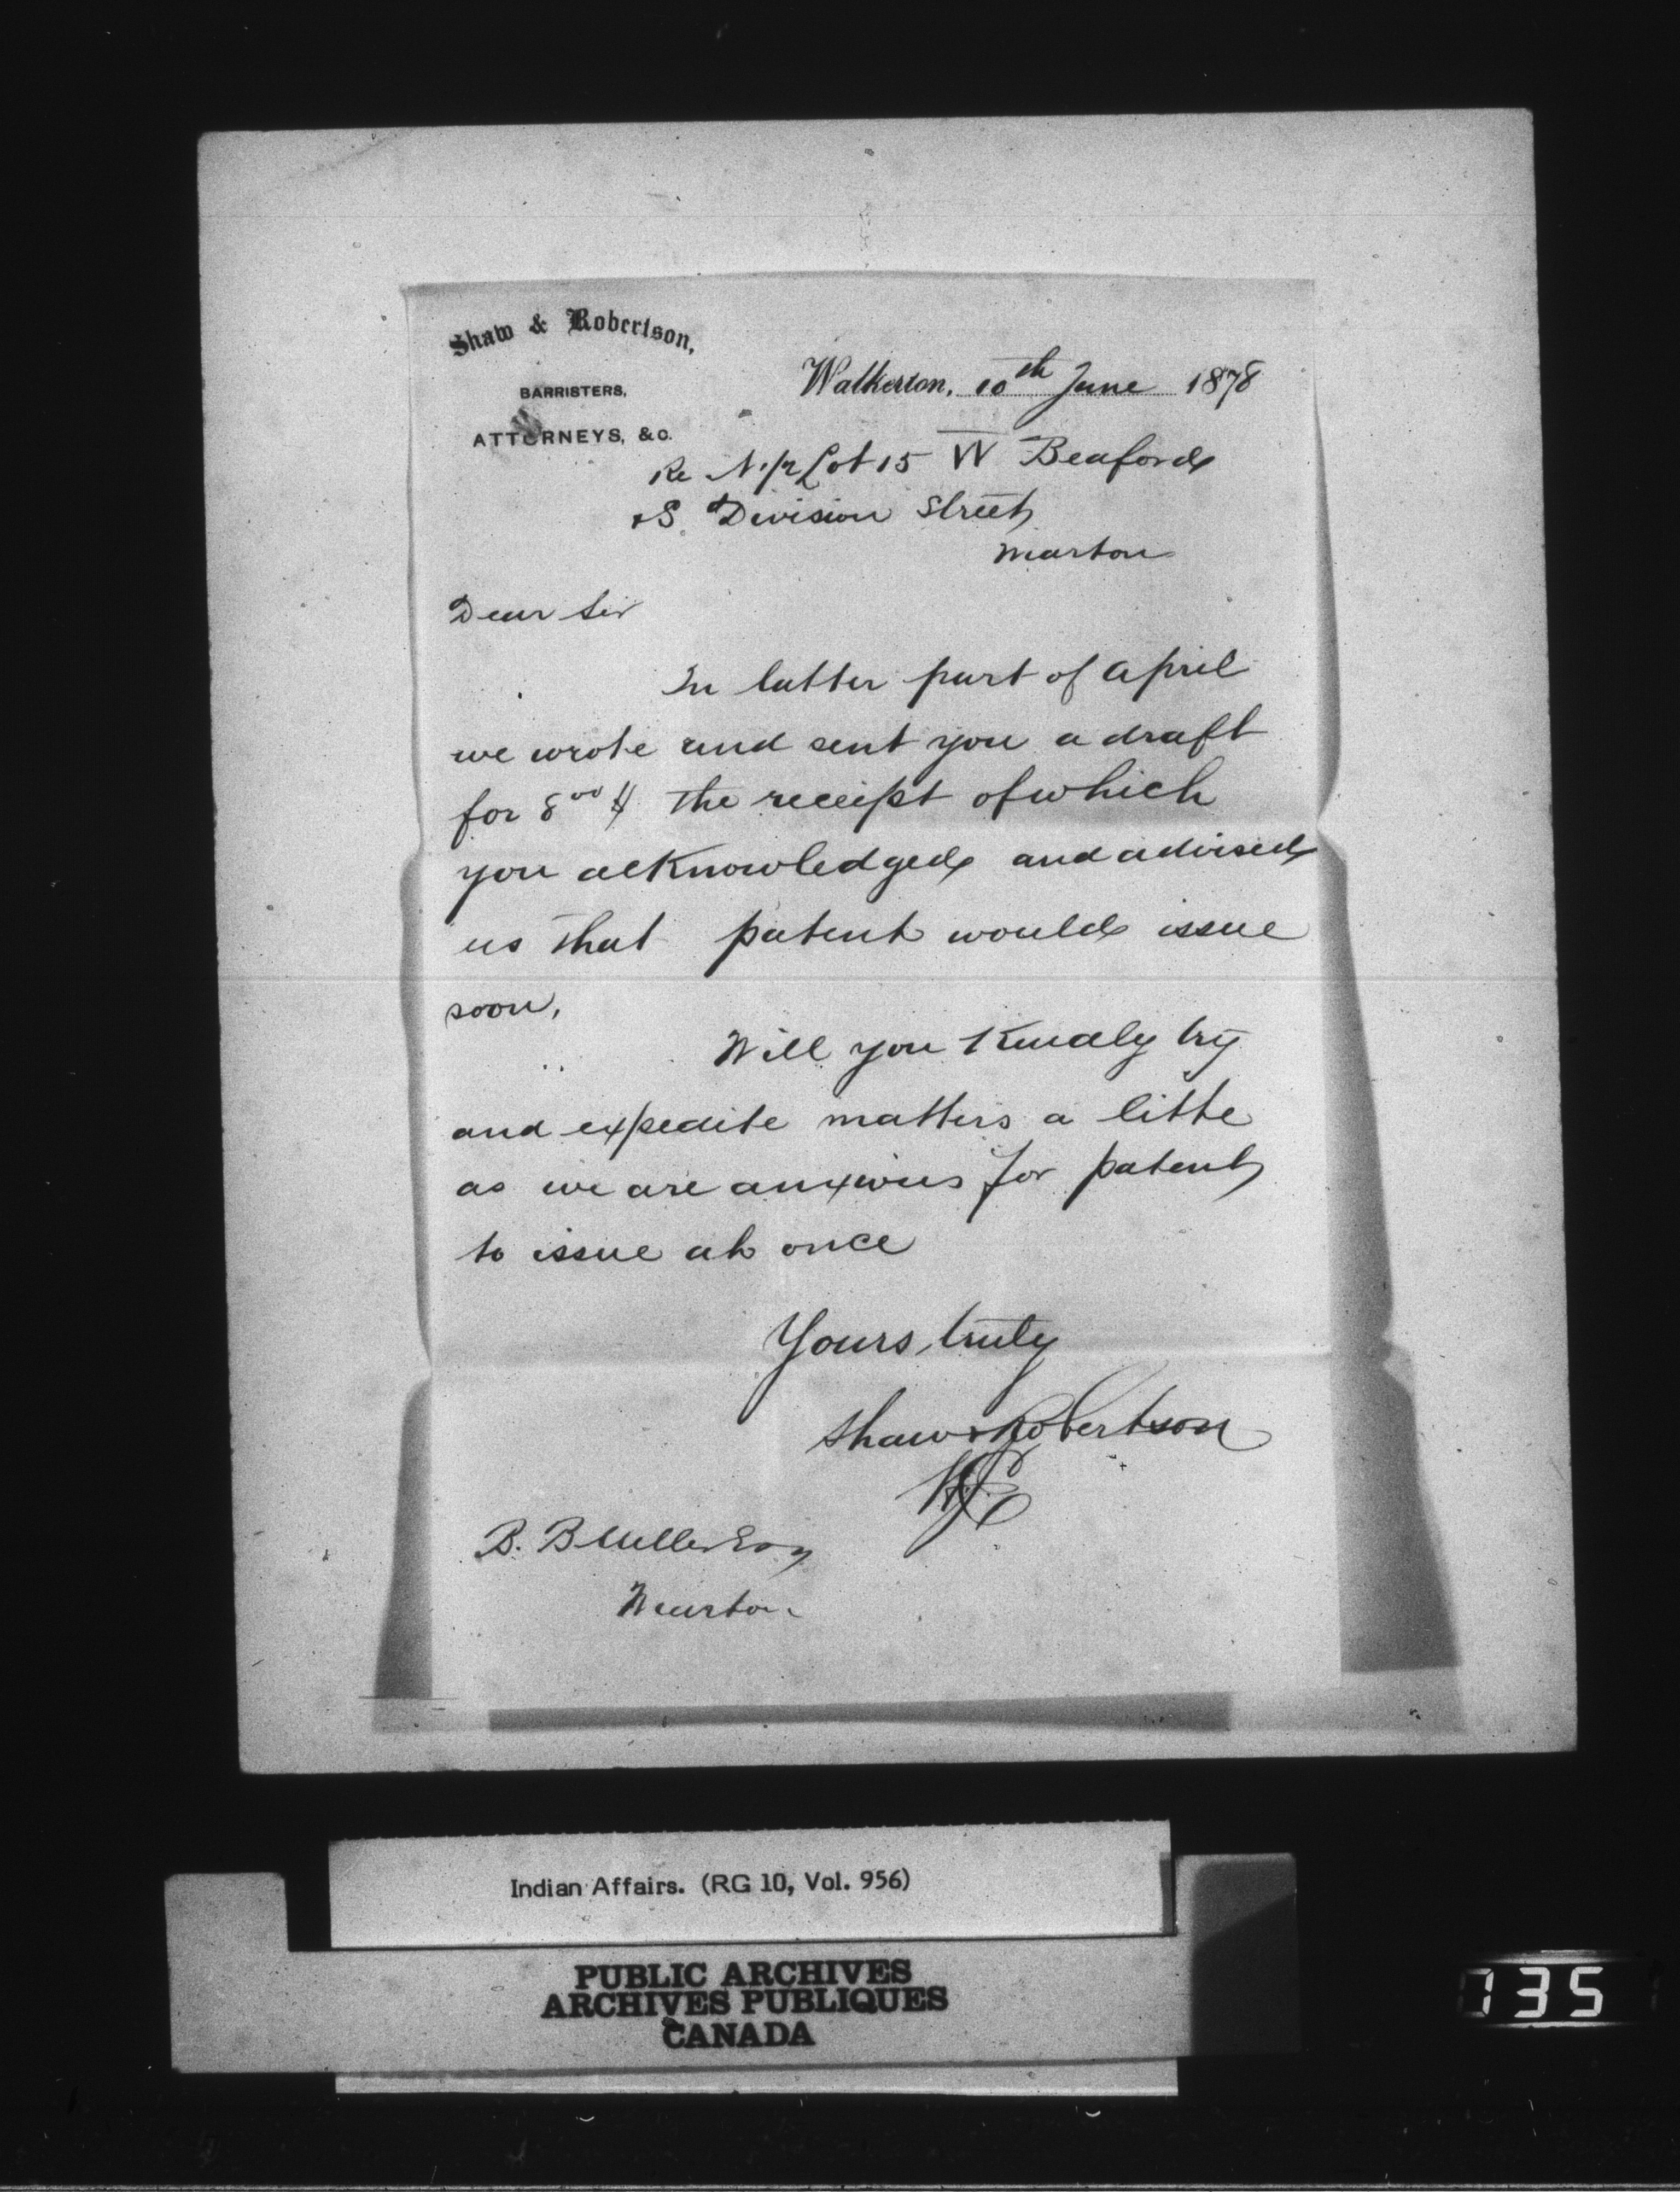 Shaw & Robertson,
BARRISTERS,
ATTORNEYS, &c.
Walkerton, 10th June 1878
Re N. 1/2 Lot 15 W Beaford
& S. Division Street
Wiarton
Dear Sir
In latter part of April
we wrote and sent you a draft
for 8 00 $ the receipt of which
you acknowledged and advised
us that patent would issue
soon,
Will you Kindly try
and expedite matters a little
as we are anxious for patent
to issue at once
Yours truly
Shaw & Robertson
B. B Miller Esq
Wiarton
Indian Affairs. (RG 10, Vol. 956)
PUBLIC ARCHIVES
ARCHIVES PUBLIQUES
CANADA
135